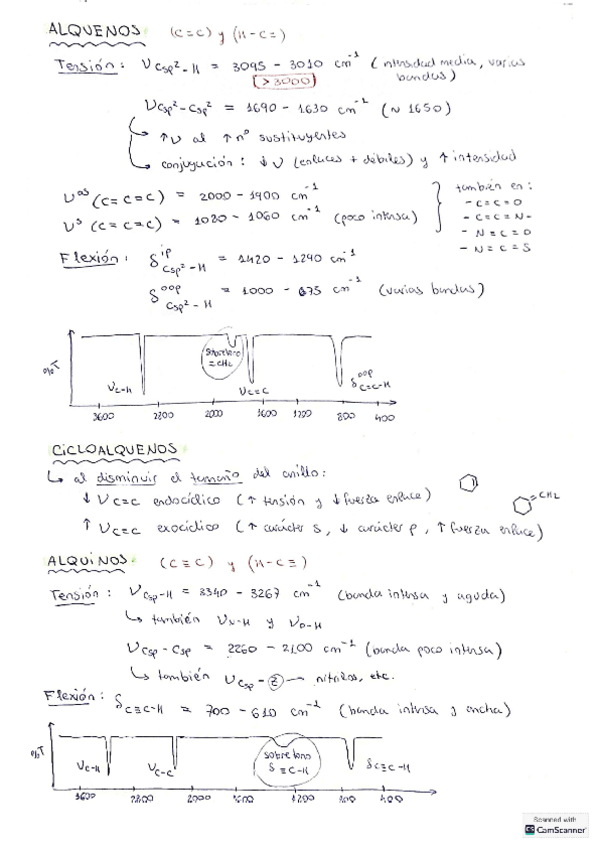 ALQUENOS (C=C) y (H-C=)
Tensión: ν Csp²-H = 3095 - 3010 cm⁻¹ (intensidad media, varias bandas)
[>3000]
ν Csp²-Csp² = 1690 - 1630 cm⁻¹ (~1650)
↑ν al ↑nº sustituyentes
conjugación: ↓ν (enlaces + débiles) y ↑ intensidad
ν^as (C=C=C) = 2000 - 1900 cm⁻¹
ν^s (C=C=C) = 1080 - 1060 cm⁻¹ (poco intensa)
también en:
- C=C=O
- C=C=N-
- N=C=O
- N=C=S
Flexión: δ^ip Csp²-H = 1420 - 1240 cm⁻¹
δ^oop Csp²-H = 1000 - 675 cm⁻¹ (varias bandas)
%T
νC-H
Sobretono =CH₂
νC=C
δ^oop C=C-H
3600 2800 2000 1600 1200 800 400
CICLOALQUENOS
↳ al disminuir el tamaño del anillo:
↓ νC=C endocíclico (↑ tensión y ↓ fuerza enlace)
↑ νC=C exocíclico (↑ carácter s, ↓ carácter p, ↑ fuerza enlace)
=CH₂
ALQUINOS (C≡C) y (H-C≡)
Tensión: νCsp-H = 3340 - 3267 cm⁻¹ (banda intensa y aguda)
↳ también νN-H y νO-H
νCsp-Csp = 2260 - 2100 cm⁻¹ (banda poco intensa)
↳ también νCsp-Z — nitrilos, etc.
Flexión: δC≡C-H = 700 - 610 cm⁻¹ (banda intensa y ancha)
%T
νC-H
νC-C
sobretono δ ≡C-H
δC≡C-H
3600 2800 2000 1600 1200 800 400
Scanned with
CS CamScanner